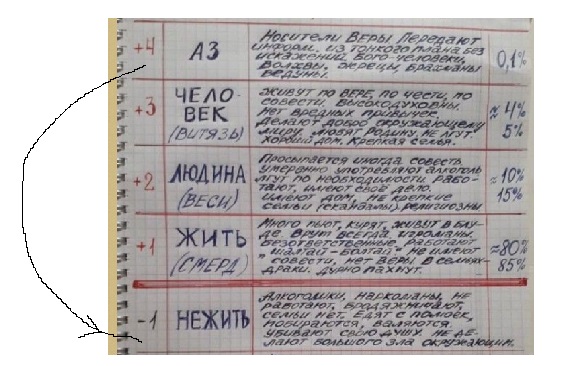 +4
АЗ
Носители Веры Передают
информ. из тонкого плана без
искажений. Бого-человеки,
волхвы, жрецы, брахманы
ведуны.
0,1%
+3
ЧЕЛО-
ВЕК
(ВИТЯЗЬ)
живут по вере, по чести, по
совести. высокодуховны.
нет вредных привычек.
делают добро окружающему
миру. любят родину. не лгут.
хороший дом, крепкая семья.
≈ 4%
5%
+2
ЛЮДИНА
(ВЕСИ)
Просыпается иногда совесть
умеренно употребляют алкоголь
лгут по необходимости рабо-
тают, имеют своё дело.
имеют дом, не крепкие
семьи (скандалы) религиозны
≈10%
15%
+1
ЖИТЬ
(СМЕРД)
Много пьют, курят, живут в блу-
де. врут всегда, изворотливы.
безответственные, работают
"шалтай-болтай" не имеют
совести, нет веры, в семьях
драки. дурно пахнут.
≈80%
85%
-1
НЕЖИТЬ
Алкоголики, наркоманы, не
работают, бродяжничают,
семьи нет. Едят с помоек,
побираются, валяются.
убивают свою душу. не де-
лают большого зла окружающим.